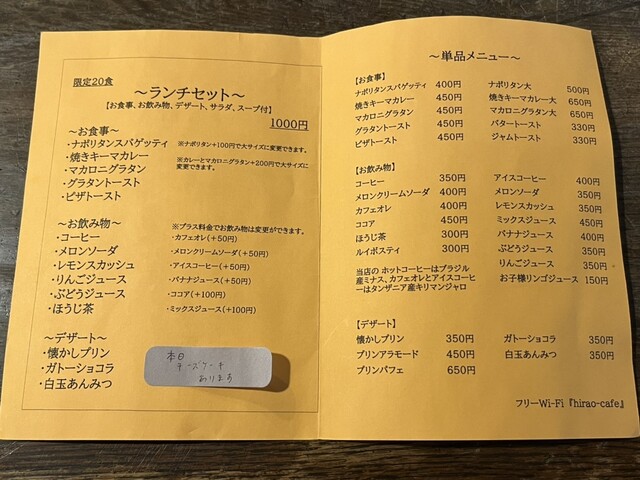 限定20食
～ランチセット～
【お食事、お飲み物、デザート、サラダ、スープ付】
1000円
～お食事～
・ナポリタンスパゲッティ ※ナポリタン+100円で大サイズに変更できます。
・焼きキーマカレー ※カレーとマカロニグラタン+200円で大サイズに
変更できます。
・マカロニグラタン
・グラタントースト
・ピザトースト
～お飲み物～ ※プラス料金でお飲み物は変更ができます。
・コーヒー ・カフェオレ(+50円)
・メロンソーダ ・メロンクリームソーダ(+50円)
・レモンスカッシュ ・アイスコーヒー(+50円)
・りんごジュース ・バナナジュース(+50円)
・ぶどうジュース ・ココア(+100円)
・ほうじ茶 ・ミックスジュース(+100円)
～デザート～
・懐かしプリン
・ガトーショコラ
・白玉あんみつ
本日
チーズケーキ
あります
～単品メニュー～
【お食事】
ナポリタンスパゲッティ 400円 ナポリタン大 500円
焼きキーマカレー 450円 焼きキーマカレー大 650円
マカロニグラタン 450円 マカロニグラタン大 650円
グラタントースト 450円 バタートースト 330円
ピザトースト 450円 ジャムトースト 330円
【お飲み物】
コーヒー 350円 アイスコーヒー 400円
メロンクリームソーダ 400円 メロンソーダ 350円
カフェオレ 400円 レモンスカッシュ 350円
ココア 450円 ミックスジュース 450円
ほうじ茶 300円 バナナジュース 400円
ルイボスティ 300円 ぶどうジュース 350円
りんごジュース 350円
お子様リンゴジュース 150円
当店の ホットコーヒーはブラジル
産ミナス、カフェオレとアイスコーヒ
ーはタンザニア産キリマンジャロ
【デザート】
懐かしプリン 350円 ガトーショコラ 350円
プリンアラモード 450円 白玉あんみつ 350円
プリンパフェ 650円
フリーWi-Fi『hirao-cafe』